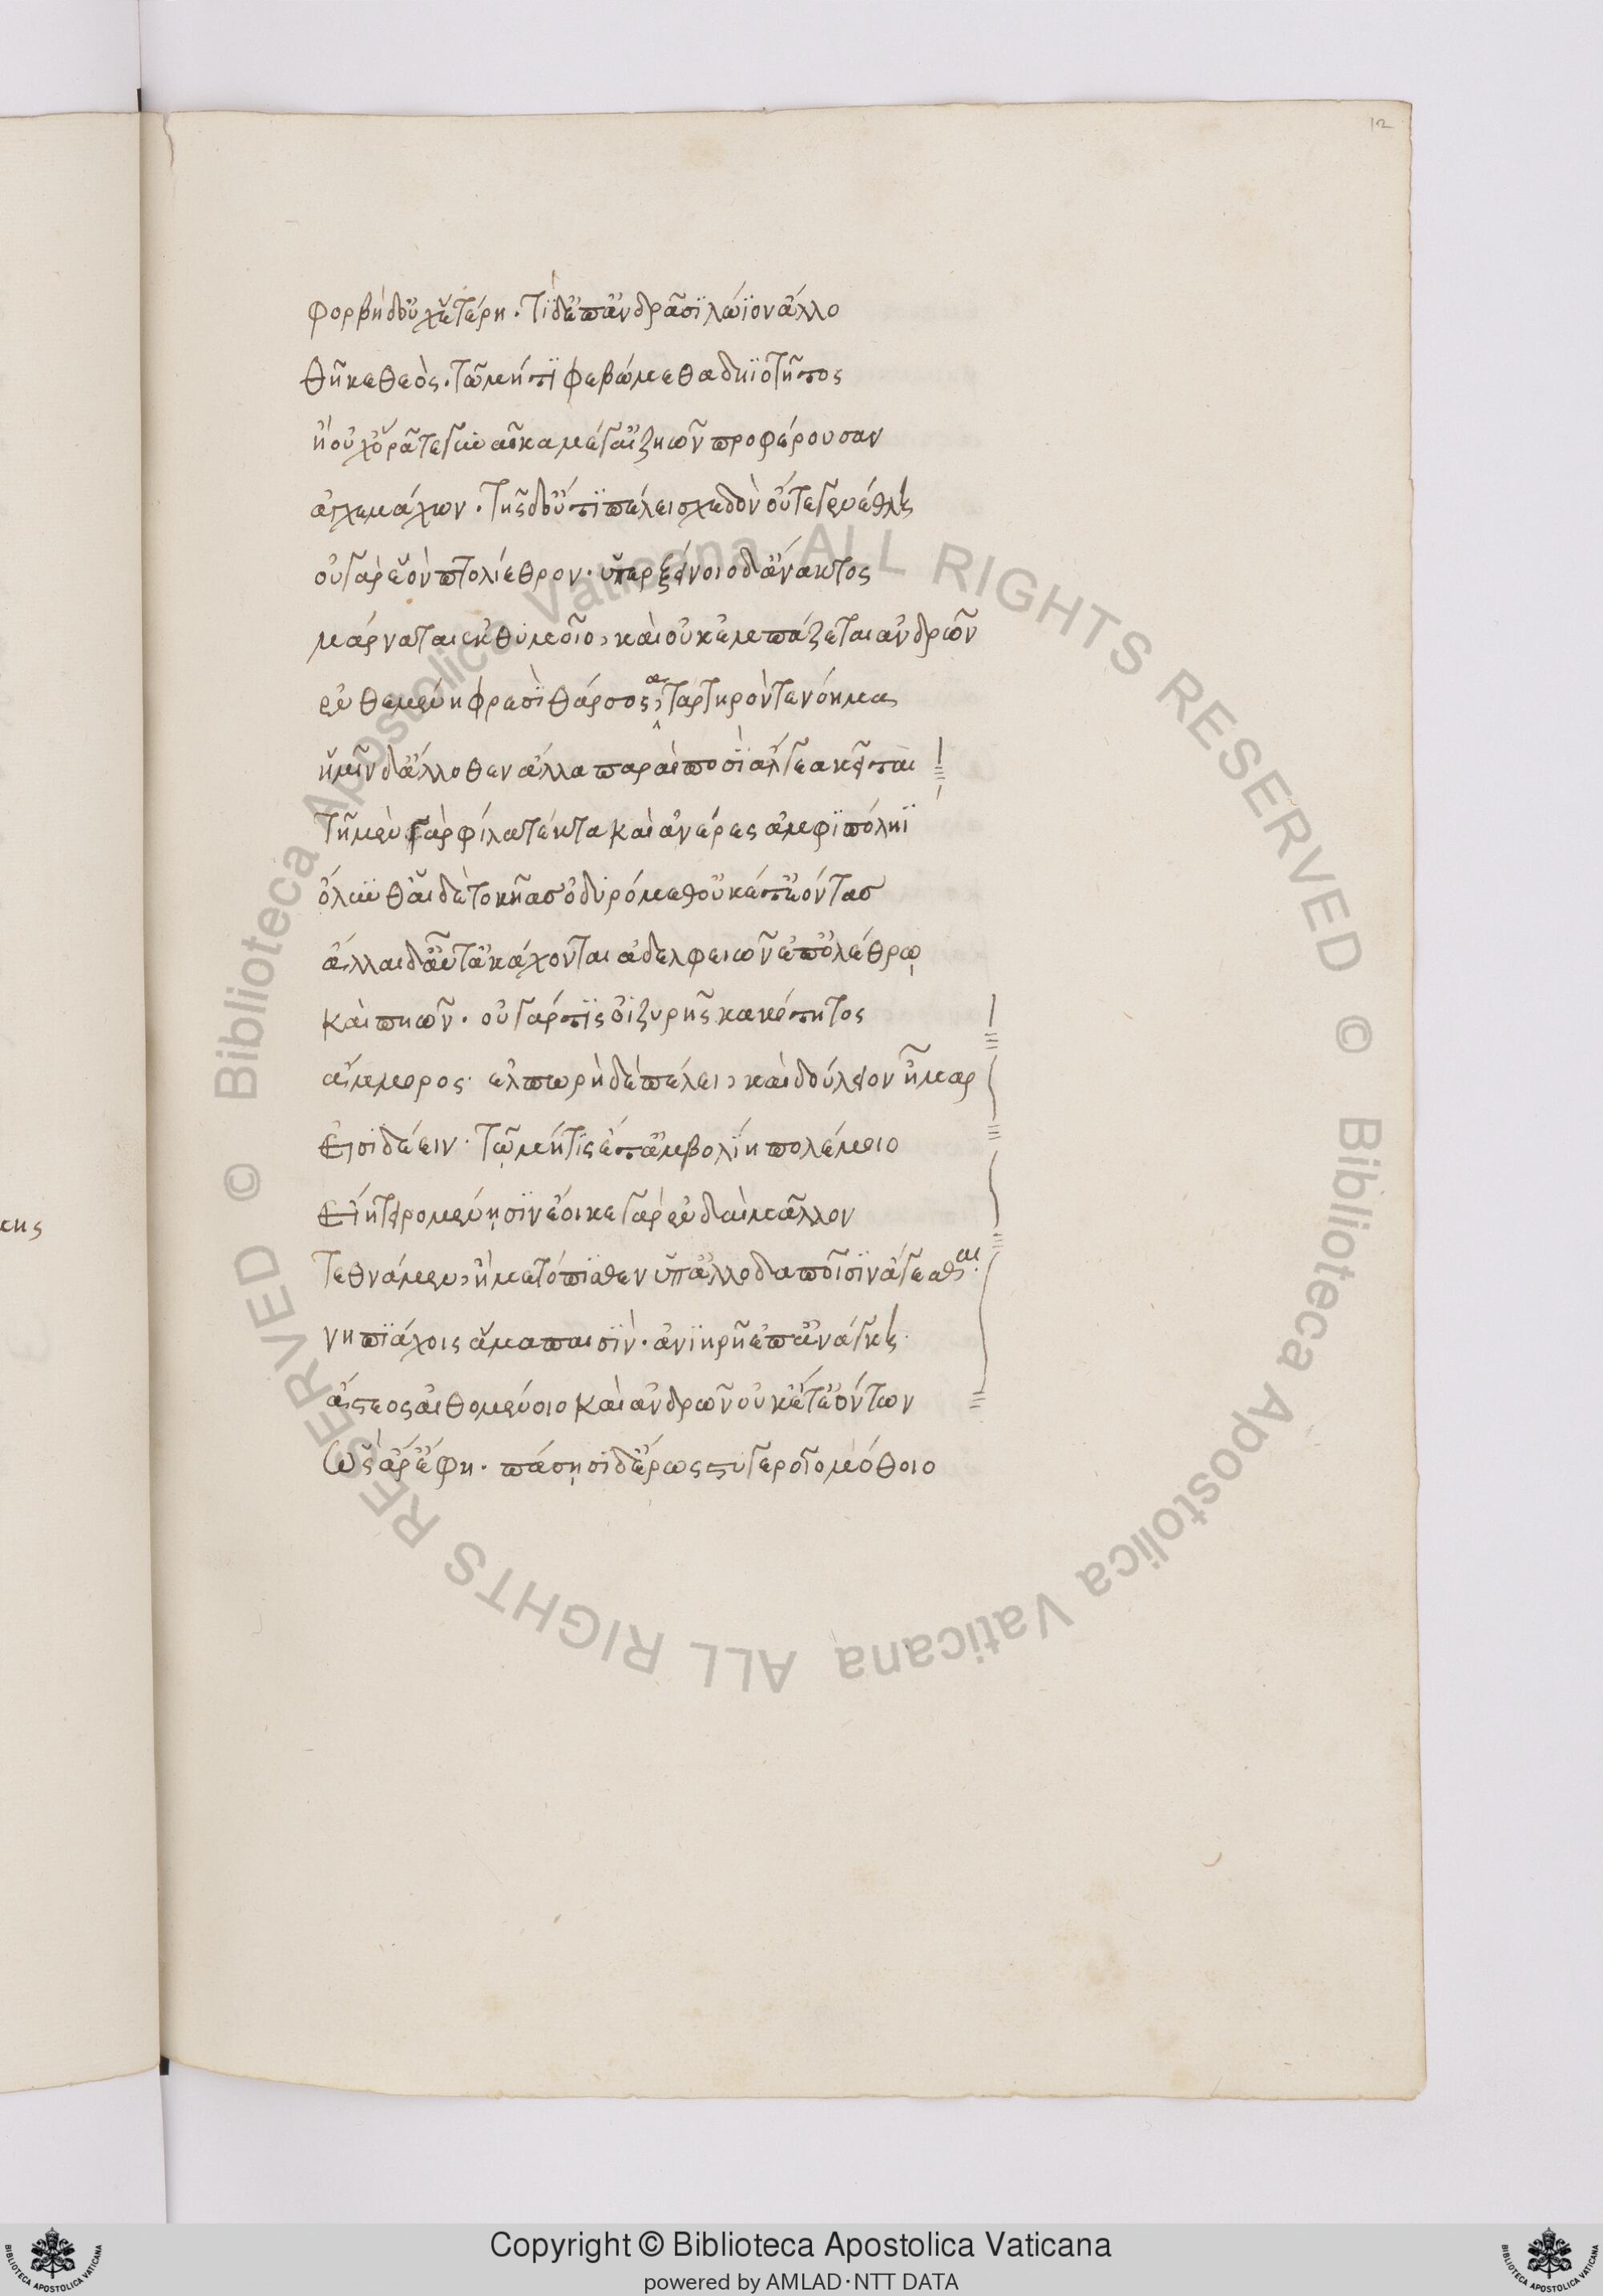 12
φορβὴ δ' οὐχ ἑτέρη · τί δ' ἐπ' ἀνδράσι λώϊον ἄλλο
θῆκε θεὸς · τῶ μή τι φεβώμεθα δηϊοτῆτος
ἢ οὐχ ὁράατε γυναῖκα μέγ' αἰζηῶν προφέρουσαν
ἀγχεμάχων · τῆς δ' οὔτι πέλει σχεδὸν οὔτε γενέθλη
οὔτ' ἄρ ἑὸν πτολίεθρον · ὑπὲρ ξείνοιο δ' ἄνακτος
μάρναται ἐκ θυμοῖο, καὶ οὐκ ἐμπάζεται ἀνδρῶν
ἐνθεμένη φρεσὶ θάρσος, ἀταρτηρόν τε νόημα
ἡμῖν δ' ἄλλοθεν ἄλλα παραὶ ποσὶ ἄλγεα κεῖται
τῇ μὲν γὰρ φίλα τέκνα καὶ ἀνέρες ἀμφὶ πόληϊ
ὄλωνθ' αἱ δὲ τοκῆας ὀδυρόμεθ' οὐκέτ' ἐόντας
ἄλλαι δ' αὖτ' ἀκάχονται ἀδελφειῶν ἐπ' ὀλέθρῳ
καὶ πηῶν · οὐ γάρ τις ὀϊζυρῆς κακότητος
ἄμμορος · ἐλπωρὴ δὲ πέλει, καὶ δούλιον ἦμαρ
εἰσιδέειν · τῷ μή τις ἔτ' ἀμβολίη πολέμοιο
εἴη τειρομένῃσιν ἔοικε γὰρ ἐν δαῒ μᾶλλον
τεθνάμεν, ἢ μετόπισθεν ὑπ' ἀλλοδαποῖσιν ἄγεσθαι
νηπιάχοις ἅμα παισὶν · ἀνιηρῇ ἐπ' ἀνάγκῃ
ἄστεος αἰθομένοιο καὶ ἀνδρῶν οὐκέτ' ἐόντων
ὣς ἄρ' ἔφη · πάσῃσι δ' ἔρως στυγεροῖο μόθοιο
Copyright © Biblioteca Apostolica Vaticana
powered by AMLAD·NTT DATA